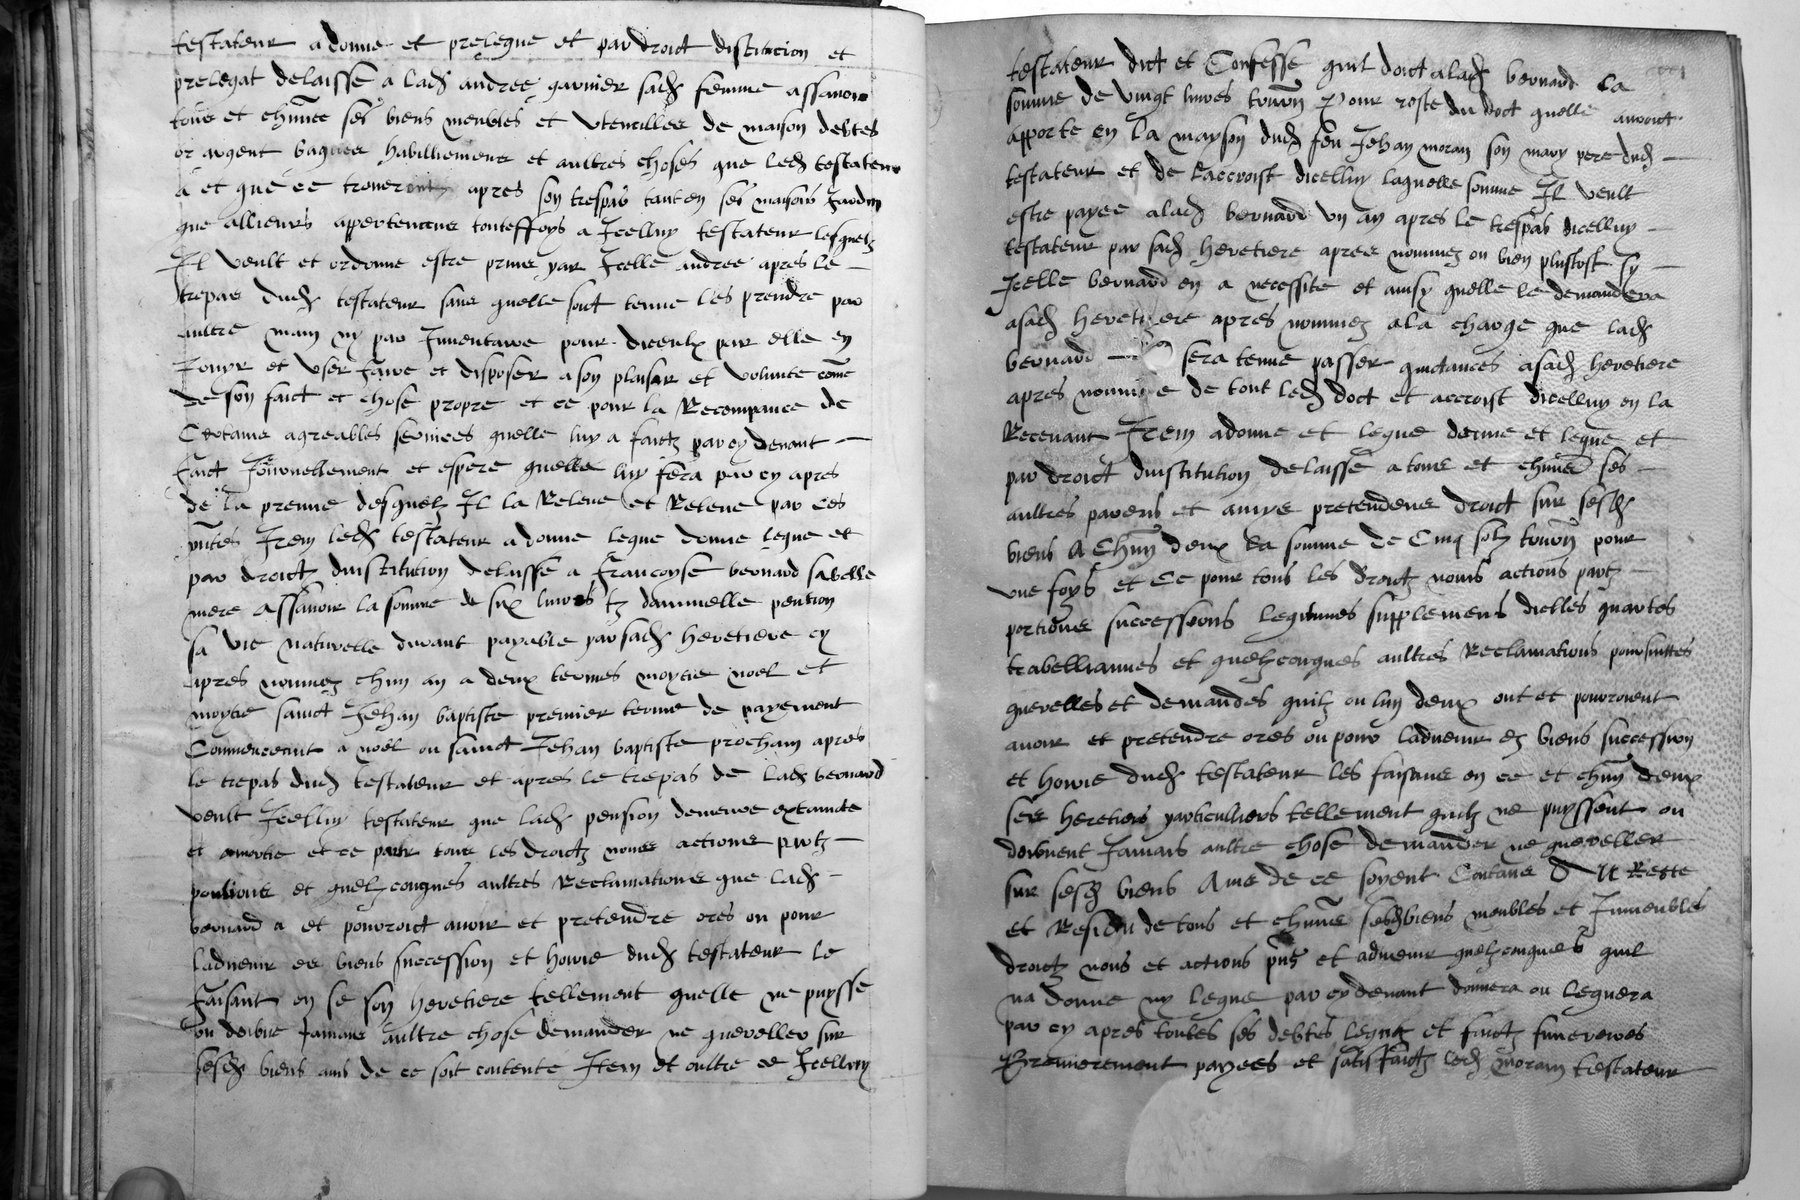 testateur a donne et prelegue et par droict distitucion et
prelegat delaisse a lad andree garnier sad femme assavoir
tous et chūns ses biens meubles et utencilles de maison debtes
or argent bagues habilliemens et aultres choses que led testateur
a et que ce trouveront apres son trespas tant en ses maisons Jardin
que allieurs appertenens touteffoys a Icelluy testateur lesquelz
Il veult et ordonne estre prins par Icelle andree apres le
trepas dud testateur sans quelle soit tenue les prendre par
aultre main ny par Inventaire pour diceulx par elle en
Jouyr et user faire et disposer a son plaisir et volunte come
de son faict et chose propre et ce pour la Recompance de
Certains agreables services quelle luy a faictz par cy devant
faict Journellement et espere quelle luy fera par cy apres
de la preuve desquelz Il la Releve et Releve par ces
pntes Item led testateur a donne legue donne legue et
par droict dinstitution delaisse a francoyse bernard sa belle
mere assavoir la somme de six livres tz dannuelle pention
sa vie naturelle durant payable par sad heretiere cy
apres nommez chun an a deux termes moytie noel et
moytie sainct Jehan baptiste premier terme de payement
Commenceant a noel ou sainct Jehan baptiste procham apres
le trepas dud testateur et apres le trepas de lad bernard
veult Icelluy testateur que lad pension demeure extaincte
et amortie et ce pour tous les droictz noms actions partz
portions et quelzconques aultres Reclamations que lad
bernard a et pourroict avoir et pretendre ores ou pour
ladvenir es biens succession et hoirie dud testateur le
faisant en se son heretiere tellement quelle ne puysse
ou doibve Jamais aultre chose demander ne quereller sur
sesd biens ains de ce soit contente Item et oultre ce Icelluy
testateur dict et Confesse quil doict a lad bernard la
somme de vingt livres tourn Pour reste du doct quelle avoict
apporte en la mayson dud feu Jehan moran son mary pere dud
testateur et de laccroist dicelluy laquelle somme Il veult
estre payee a lad bernard un an apres le trespas dicelluy
testateur par sad heretiere apres nommez ou bien plustost sy
Icelle bernard en a necessite et ainsy quelle le demandera
a sad heretiere apres nommez a la charge que lad
bernard sera tenue passer quictances a sad heretiere
apres nommee de tout led doct et accroist dicelluy en la
Recevant Item a donne et legue donne et legue et
par droict dinstitution delaisse a tous et chuns ses
aultres parens et amys pretendens droict sur sesd
biens A Chun deux la somme de Cinq solz tourn pour
une foys et Ce pour tous les droictz noms actions partz
portions successions legitimes supplemens dicelles quartes
trabellianes et quelzconques aultres Reclamations poursuittes
querelles et demandes quilz ou luy deux ont et pourroient
avoir et pretendre ores ou pour ladvenir ez biens succession
et hoirie dud testateur les faisans en ce et chun deux
ses heretiers particulliers tellement quilz ne puyssent ou
doibvent Jamais aultre chose demander ne quereller
sur sesd biens Ains de ce soyent Contans Et Reste
et Residu de tous et chuns sesd biens meubles et Immeubles
droictz noms et actions pns et advenir quelzconques quil
na donne ny legue par cy devant donnera ou leguera
par cy apres toutes ses debtes legatz et fraictz funereres
Premierement payees et satisfaictz led moran testateur